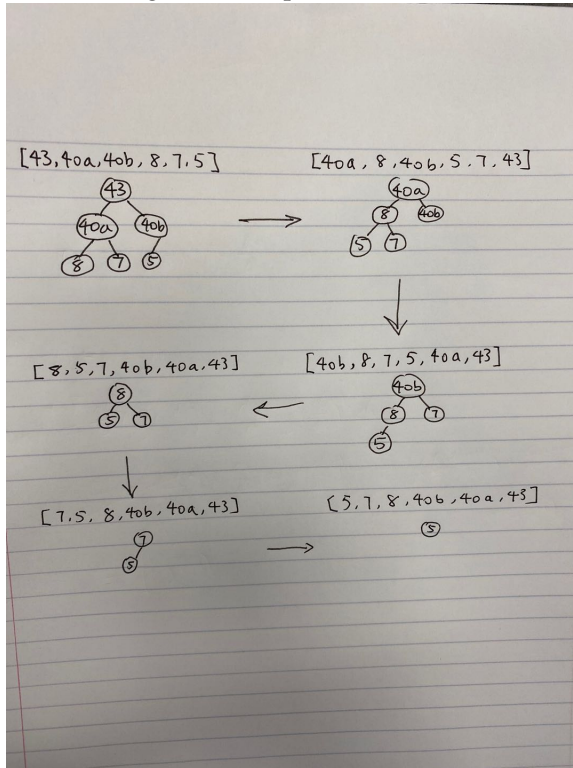 [43,40a,40b,8,7,5]
43
40a 40b
8 7 5
[40a, 8,40b,5.7,43]
40a
8 40b
5 7
[40b,8,7,5,40a,43]
40b
8 7
5
[8,5,7,40b,40a,43]
8
5 7
[7.5, 8,40b,40a,43]
7
5
[5,7,8,40b,40a,43]
5